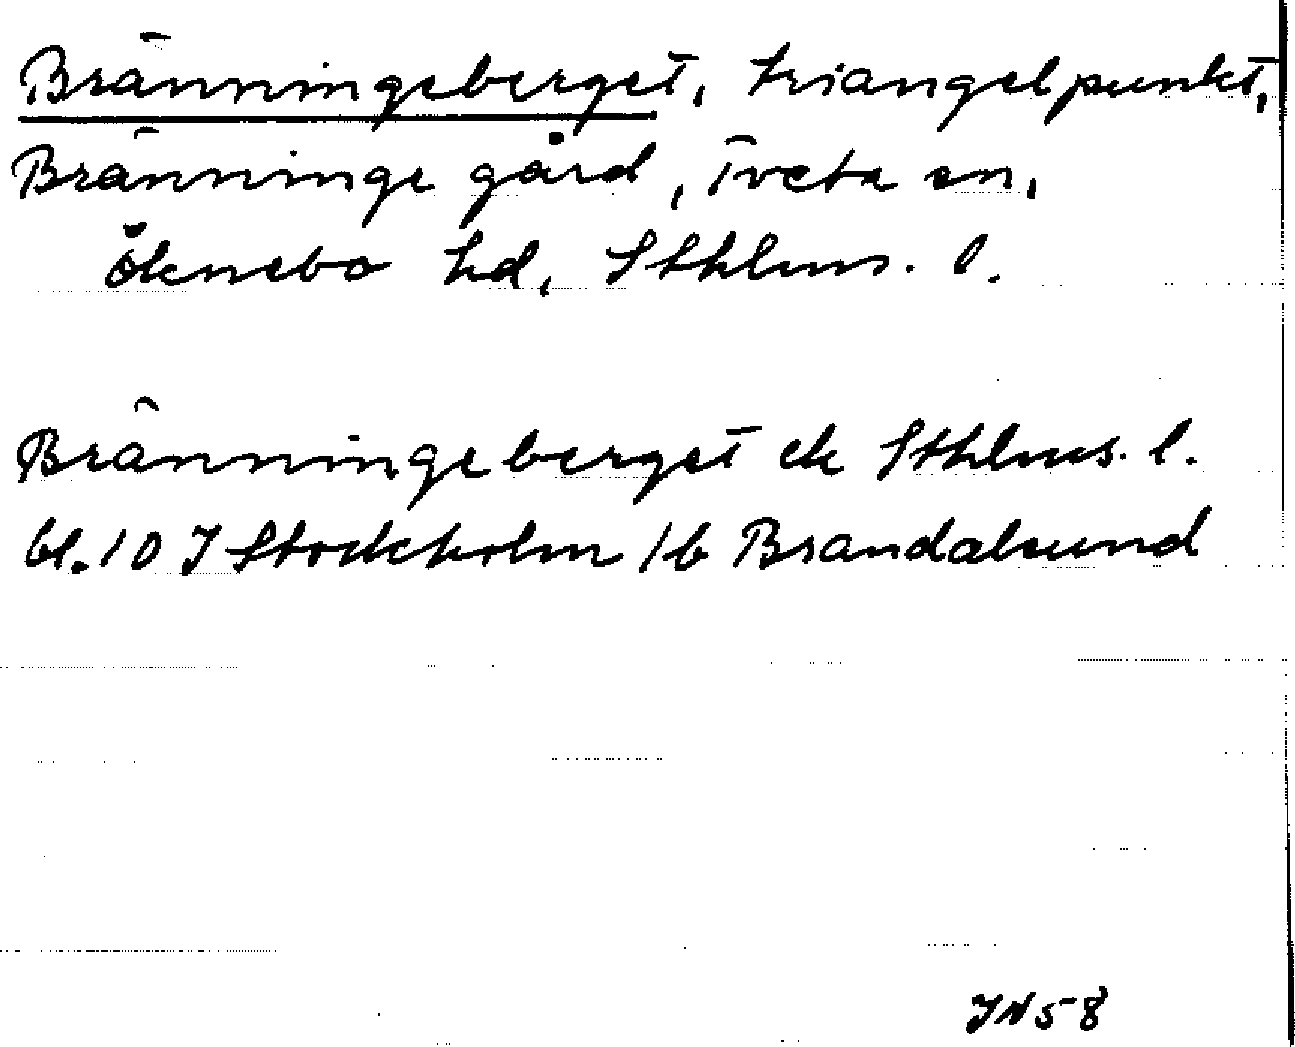 Bränningeberget, triangelpunkt,
Bränninge gård, Tveta sn,
Öknebo hd, Sthlms. l.
Bränningeberget ek Sthlms. l.
bl. 10 I Stockholm 1b Brandalsund
IN 58